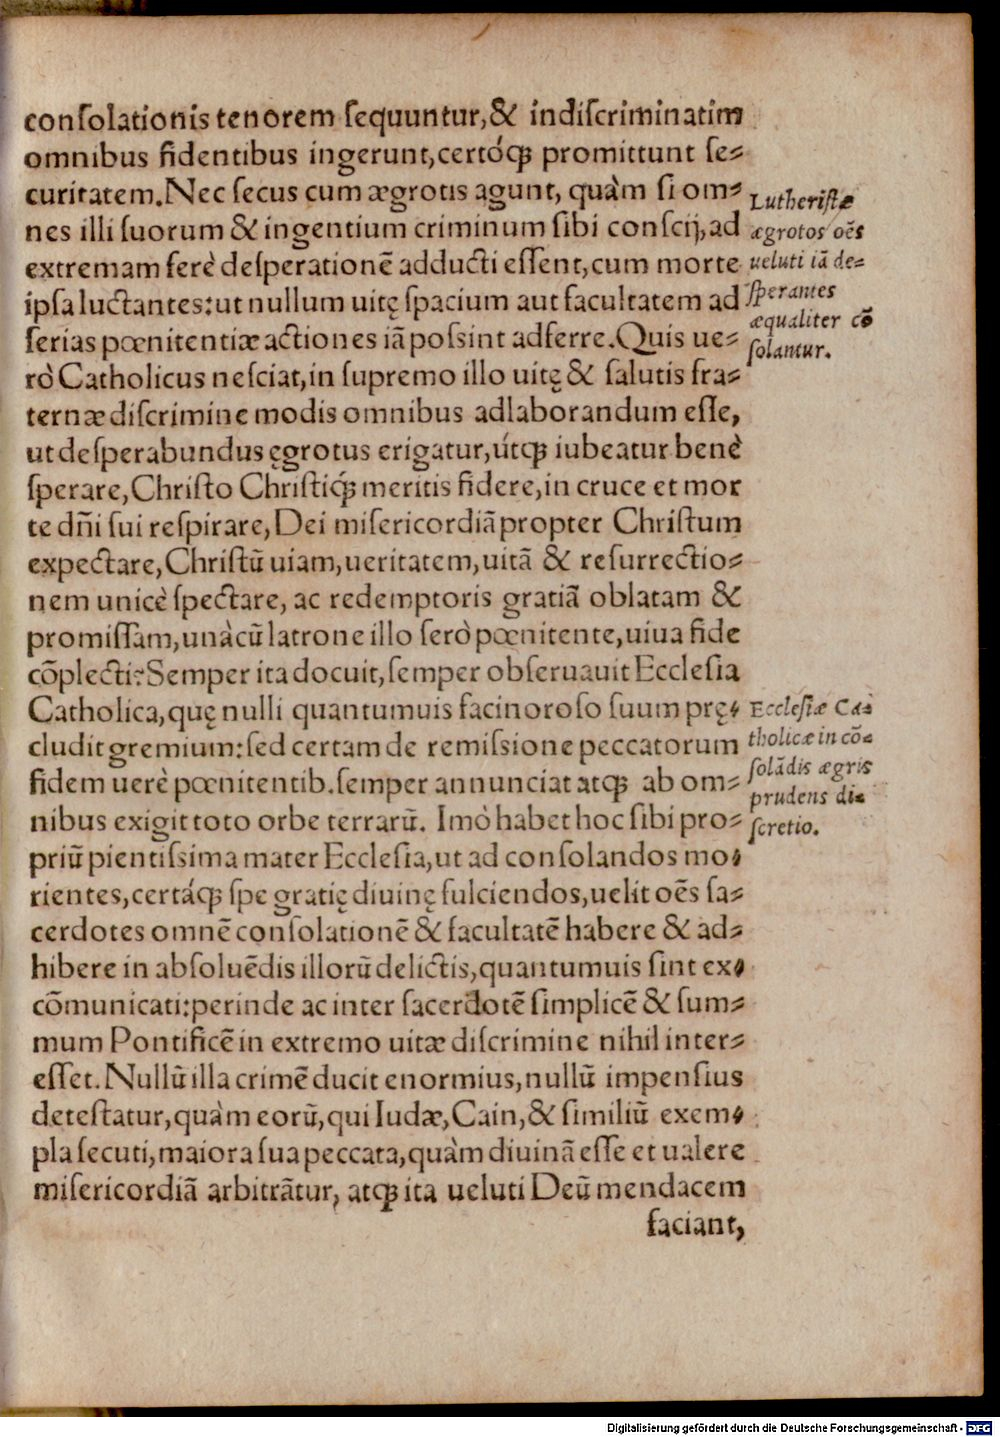 conſolationis tenorem ſequuntur, & indiſcriminatim
omnibus fidentibus ingerunt, certóq́ꝫ promittunt ſe⸗
curitatem. Nec ſecus cum ægrotis agunt, quàm ſi om⸗
nes illi ſuorum & ingentium criminum ſibi conſcij, ad
extremam ferè deſperationē adducti eſſent, cum morte
ipſa luctantes: ut nullum uitę ſpacium aut facultatem ad
ſerias pœnitentiæ actiones iā poſsint adferre. Quis ue⸗
rò Catholicus neſciat, in ſupremo illo uitę & ſalutis fra⸗
ternæ diſcrimine modis omnibus adlaborandum eſſe,
ut deſperabundus ęgrotus erigatur, útqꝫ iubeatur benè
ſperare, Chriſto Chriſtiq́ꝫ meritis fidere, in cruce et mor
te dñi ſui reſpirare, Dei miſericordiā propter Chriſtum
expectare, Chriſtū uiam, ueritatem, uitā & reſurrectio⸗
nem unicè ſpectare, ac redemptoris gratiā oblatam &
promiſſam, unàcū latrone illo ſerò pœnitente, uiua fide
cōplecti? Semper ita docuit, ſemper obſeruauit Eccleſia
Catholica, quę nulli quantumuis facinoroſo ſuum prę⸗
cludit gremium: ſed certam de remiſsione peccatorum
fidem uerè pœnitentib. ſemper annunciat atqꝫ ab om⸗
nibus exigit toto orbe terrarū. Imò habet hoc ſibi pro⸗
priū pientiſsima mater Eccleſia, ut ad conſolandos mo⸗
rientes, certáqꝫ ſpe gratię diuinę fulciendos, uelit oēs ſa⸗
cerdotes omnē conſolationē & facultatē habere & ad⸗
hibere in abſoluēdis illorū delictis, quantumuis ſint ex⸗
cōmunicati: perinde ac inter ſacerdotē ſimplicē & ſum⸗
mum Pontificē in extremo uitæ diſcrimine nihil inter⸗
eſſet. Nullū illa crimē ducit enormius, nullū impenſius
deteſtatur, quàm eorū, qui Iudæ, Cain, & ſimiliū exem⸗
pla ſecuti, maiora ſua peccata, quàm diuinā eſſe et ualere
miſericordiā arbitrātur, atqꝫ ita ueluti Deū mendacem
faciant,
Lutheriſtæ
ægrotos oēs
ueluti iā de⸗
ſperantes
æqualiter cō
ſolantur.
Eccleſiæ Ca⸗
tholicæ in cō⸗
ſolādis ægris
prudens di⸗
ſcretio.
Digitalisierung gefördert durch die Deutsche Forschungsgemeinschaft - DFG